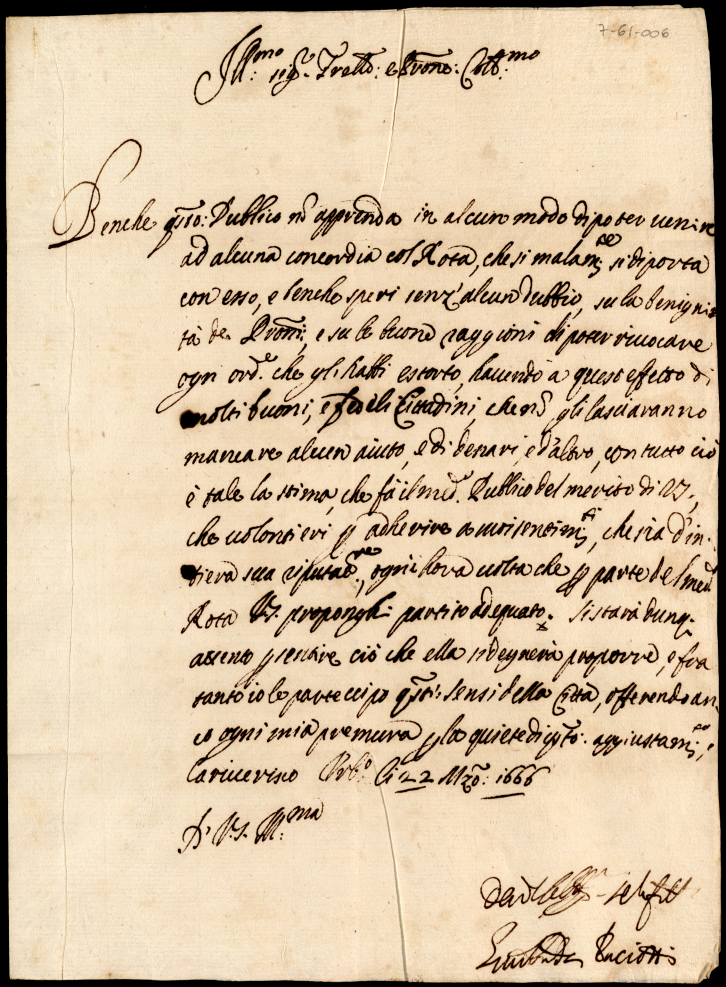 7-61-006
Ill:mo sig.r Fratello: e Prone: Coll:mo
Benche q.sto: Publico nõ apprenda in alcun modo di poter venire
ad alcuna concordia col Rota, che si malam.te si diporta
con esso, e benche speri senz'alcun dubbio, su la benigni
tà de Proni:, e su le buone raggioni di poter rivocare
ogni ord.e che gli habbi estorto, havendo a quest effetto di
molti buoni, e fedeli Cittadini, che nõ gli lasciaranno
mancare alcun aiuto, e di denari, e d'altro, con tutto ciò
è tale la stima, che fà il med.o Publico del merito di VS,
che volontieri p adherire a suoi sentim.ti, che sia d'in
tiera sua riputat.ne, ogni hora volta che p parte del med.o
Rota VS. proponghi partito adequato. Si starà dunq.
attento p sentire ciò che ella si degnerà proporre, e fra
tanto io le partecipo q.sti: sensi della Città, offerendo an
co ogni mia premura p la quiete di q.sto: aggiustam.to, e
la riverisco Urb.o li 22 Mzo: 1666
D' V.S. Ill:ma
Paciotti